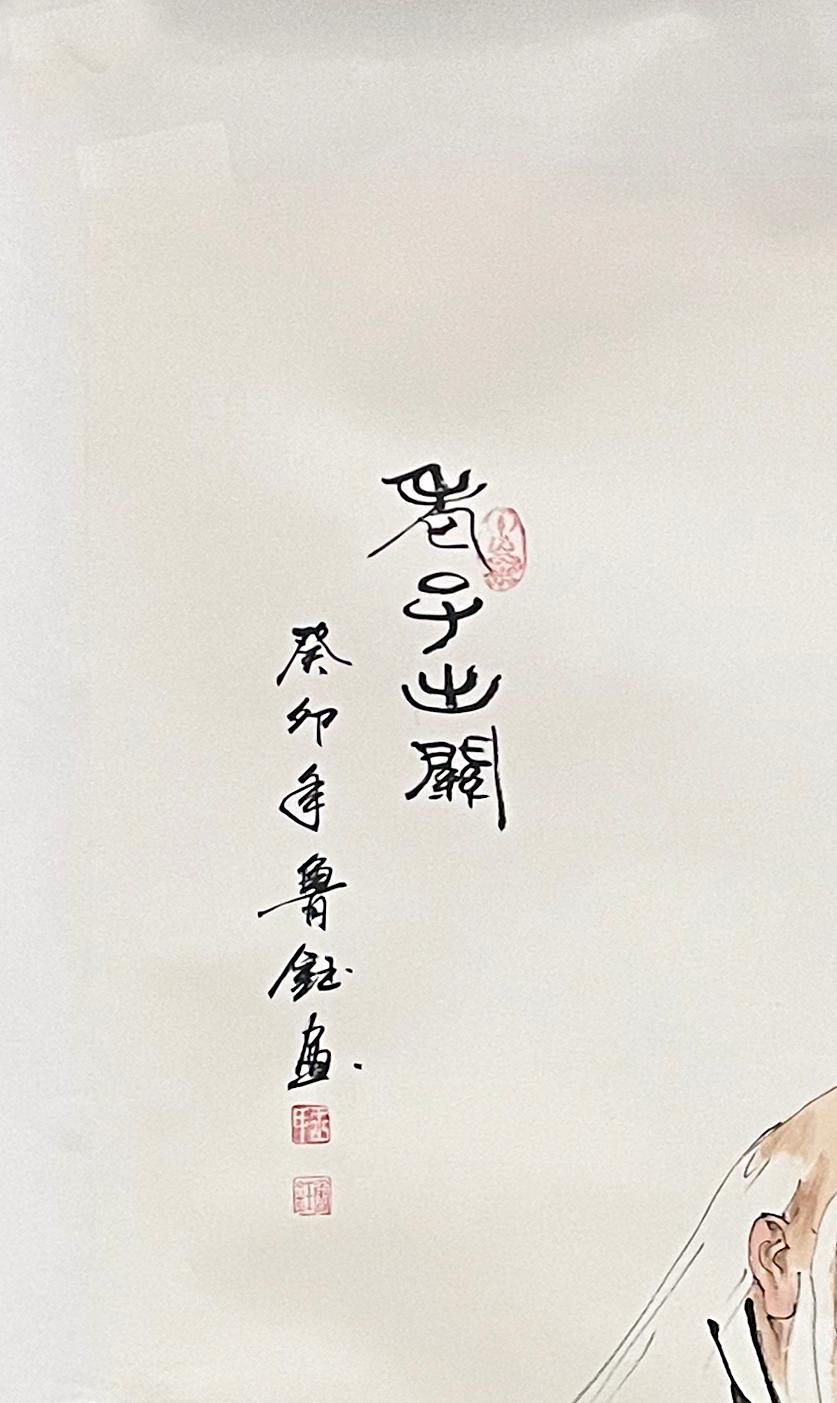 老子出關
癸卯年魯鈺畫